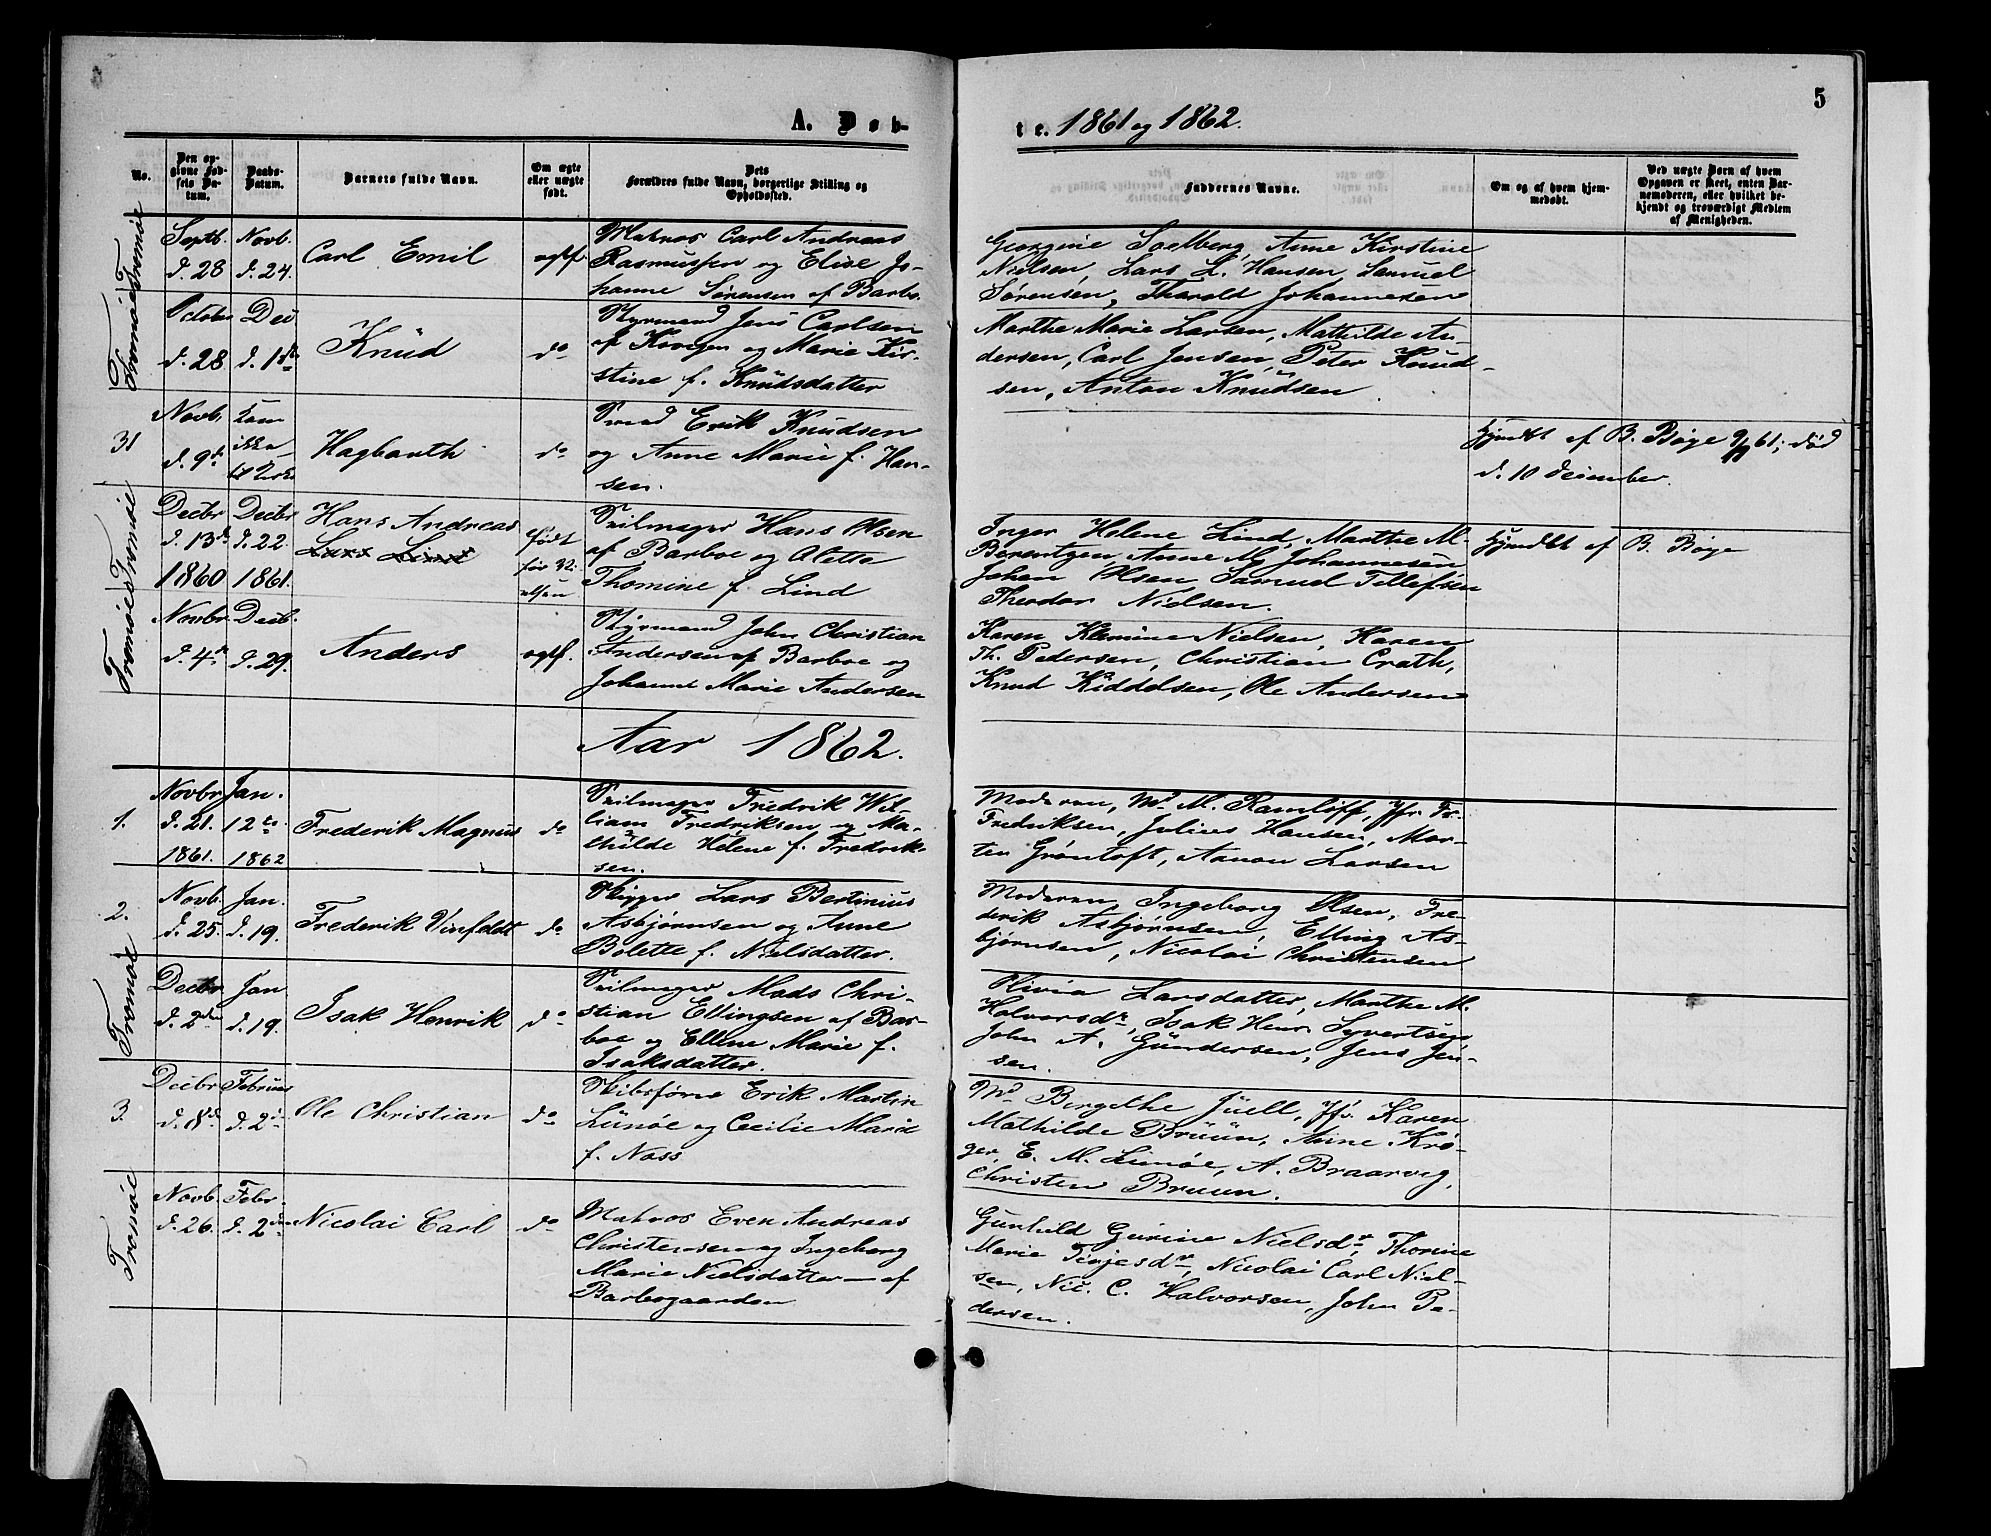 5
A. Døb-
te. 1861 og 1862.
No.
Den op-
givne Fød-
sels Da-
tum.
Daabs-
Datum.
Barnets fulde Navn.
Om ægte
eller uægte
født.
Dets
Forældres fulde Navn, borgerlige Stilling og
Opholdssted.
Faddernes Navne.
Om og af hvem hjem-
medøbt.
Ved uægte Børn af hvem
Opgaven er skeet, enten Bar-
nemoderen, eller hvilket be-
kjendt og troværdigt Medlem
af Menigheden.
Tromøe
Septb.
d. 28
Novb.
d. 24.
Carl Emil
ægtf.
Matros Carl Andreas
Rasmussen og Elise Jo-
hanne Sørensen af Barbo.
Georgine Soelberg, Anne Kirstine
Nielsen, Lars L. Hansen, Samuel
Sørensen, Tharald Johannesen
Tromøe
October
d. 28
Dec
d. 1ste
Knud
do
Styrmand Jens Carlsen
af Kongen og Marie Kir-
stine f. Knudsdatter
Marthe Marie Larsen, Mathilde An-
dersen, Carl Jensen, Peter Knud-
sen, Anton Knudsen
31
Novb.
d. 9de
kom
ikke
til Kirke
Hagbarth
do
Smed Erik Knudsen
og Anne Marie f. Han-
sen.
hjemdt af B. Bøge 9/11 61; død
d. 10 December.
Tromøe
Decbr
d. 13de
1860
Decbr
d. 22.
1861.
Hans Andreas
Lars Lind
født
før Vi-
elsen
Seilmager Hans Olsen
af Barboe og Aletta
Thomine f. Lind
Inger Helene Lind, Marthe M.
Berentzen, Anne M. Johannesen
Johan Olsen, Samuel Tellefsen
Theodor Nielsen.
hjemdbt af B. Bøge
Tromøe
Novbr
d. 4de
Decb.
d. 29.
Anders
ægtf.
Styrmand John Christian
Andersen af Barboe og
Johanne Marie Andersen
Karen Kamine Nielsen, Karen
Th. Pedersen, Christian Crath,
Knud Kiddelsen, Ole Andersen
Aar 1862.
1.
Novbr
d. 21.
1861.
Jan.
12te
1862
Frederik Magnus
do
Seilmager Fredrik Wil-
liam Fredriksen og Ma-
thilde Helene f. Fredrik-
sen.
Moderen, Md. M. Ramløff, Jfr. Fr.
Fredriksen, Julius Hansen, Mor-
ten Grøntoft, Aanon Larsen
2.
Novb.
d. 25.
Jan.
d. 19.
Frederik Vinfeldt
do
Skipper Lars Bertinius
Asbjørnsen og Anne
Bolette f. Nielsdatter.
Moderen, Ingeborg Olsen, Fre-
derik Asbjørnsen, Elling As-
bjørnsen, Nicolai Christensen
Tromøe
Decbr
d. 2den
Jan
d. 19.
Isak Henrik
do
Seilmager Mads Chri-
stian Ellingsen af Bar-
boe og Elline Marie f.
Isaksdatter.
Olivia Larsdatter, Marthe M.
Halvorsdr, Isak Henr. Syvertsen
John A. Gundersen, Jens Jen-
sen.
3.
Decbr
d. 8de
Februar
d. 2den
Ole Christian
do
Skibsfører Erik Martin
Lunøe og Cecilie Marie
f. Næss
Md Bergithe Juell, Jfr. Karen
Mathilde Bruun, Anne Krø-
ger, E. M. Lunøe, A. Braarvig,
Christen Bruun.
Tromøe
Novb.
d. 26.
Febr.
d. 2den
Nicolai Carl
do
Matros Even Andreas
Christensen og Ingeborg
Marie Nielsdatter – af
Barbogaarden
Gunhild Gurine Nielsdr, Thorine
Marie Terjesdr, Nicolai Carl Niel-
sen, Nic. C. Halvorsen, John Pe-
dersen.